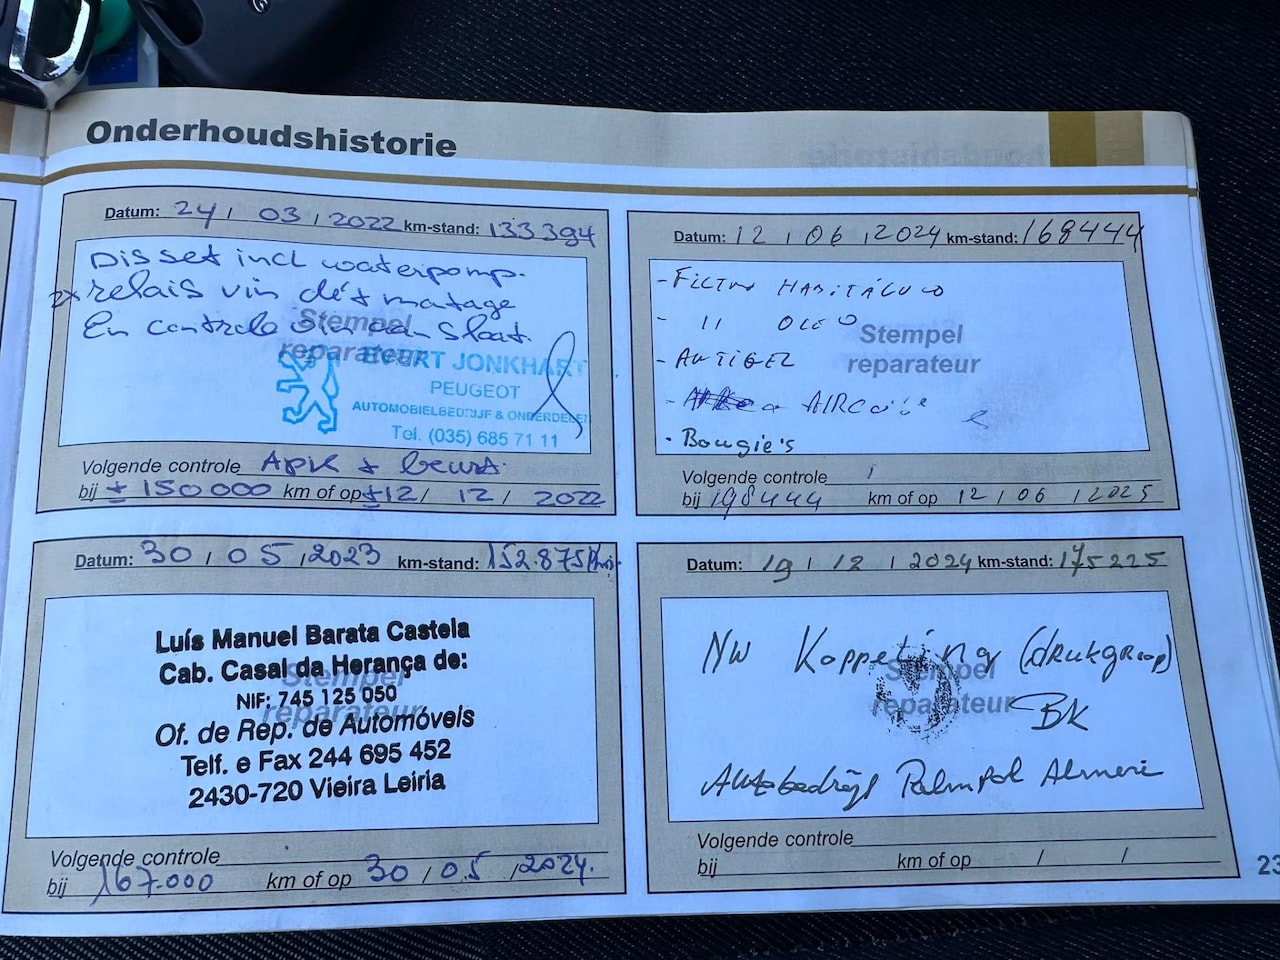 Onderhoudshistorie
Datum: 24 / 03 / 2022 km-stand: 133394
Dis set incl waterpomp.
2x relais vin dét matage
En controle om aan slaat.
Stempel
reparateur
EVERT JONKHART
PEUGEOT
AUTOMOBIELBEDRIJF & ONDERDELEN
Tel. (035) 685 71 11
Volgende controle APK + beurt.
bij ± 150000 km of op ± 12 / 12 / 2022
Datum: 12 / 06 / 2024 km-stand: 168444
- FILTRO HABITÁCULO
- 11 OLEO
- ANTIGEL
- AIRCO
Stempel
reparateur
• Bougie's
Volgende controle
bij 198444 km of op 12 / 06 / 2025
Datum: 30 / 05 / 2023 km-stand: 152.875
Luís Manuel Barata Castela
Cab. Casal da Herança de:
Stempel
NIF: 745 125 050
reparateur
Of. de Rep. de Automóveis
Telf. e Fax 244 695 452
2430-720 Vieira Leiria
Volgende controle
bij 167.000 km of op 30 / 05 / 2024.
Datum: 19 / 12 / 2024 km-stand: 175225
NW Koppeling (drukgroep)
Stempel
reparateur
BK
Autobedrijf Palmpol Almere
Volgende controle
bij km of op / /
23